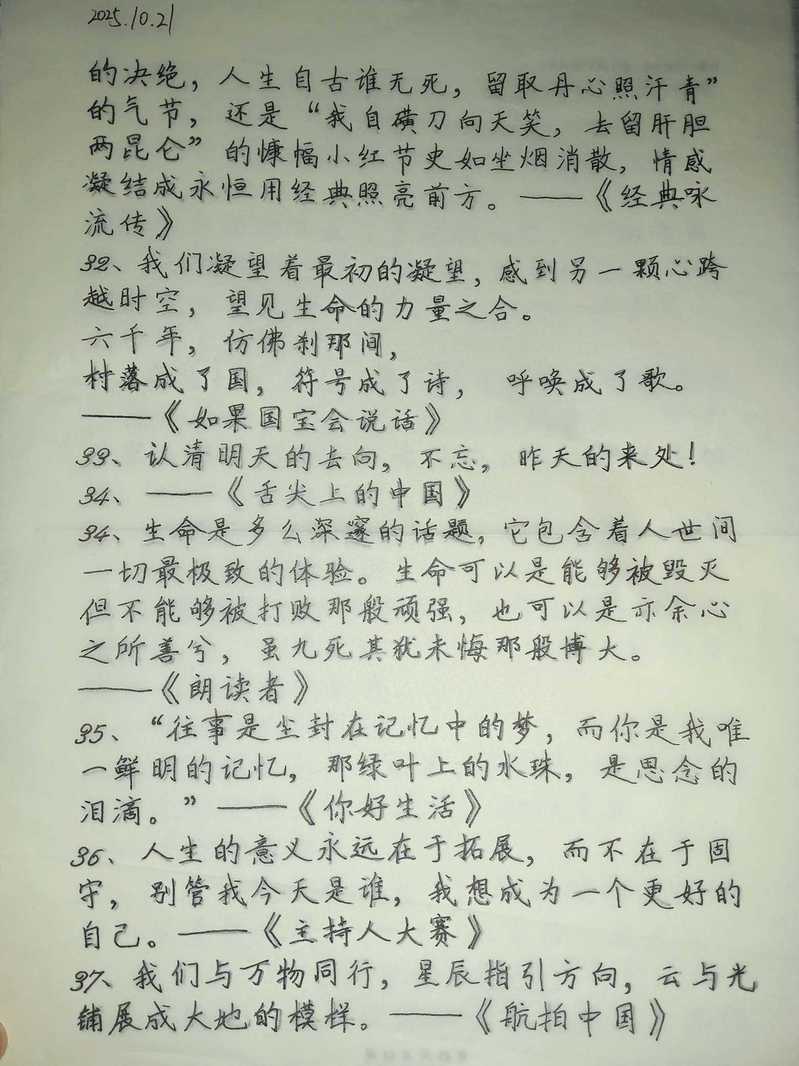 2025.10.21
的决绝，人生自古谁无死，留取丹心照汗青”
的气节，还是“我自横刀向天笑，去留肝胆
两昆仑”的慷幅小红节史如坐烟消散，情感
凝结成永恒用经典照亮前方。——《经典咏
流传》
32、我们凝望着最初的凝望，感到另一颗心跨
越时空，望见生命的力量之合。
六千年，仿佛刹那间，
村落成了国，符号成了诗，呼唤成了歌。
——《如果国宝会说话》
33、认清明天的去向，不忘，昨天的来处！
34、——《舌尖上的中国》
34、生命是多么深邃的话题，它包含着人世间
一切最极致的体验。生命可以是能够被毁灭
但不能够被打败那般顽强，也可以是亦余心
之所善兮，虽九死其犹未悔那般博大。
——《朗读者》
35、“往事是尘封在记忆中的梦，而你是我唯
一鲜明的记忆，那绿叶上的水珠，是思念的
泪滴。”——《你好生活》
36、人生的意义永远在于拓展，而不在于固
守，别管我今天是谁，我想成为一个更好的
自己。——《主持人大赛》
37、我们与万物同行，星辰指引方向，云与光
铺展成大地的模样。——《航拍中国》